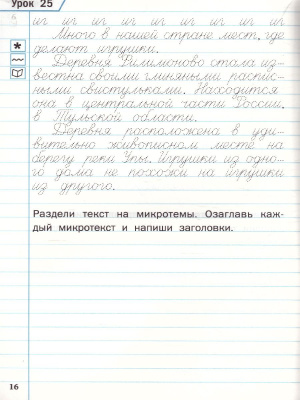 Урок 25
иг иг иг иг иг иг иг иг иг
Много в нашей стране мест, где
делают игрушки.
Деревня Филимоново стала из-
вестна своими глиняными распис-
ными свистульками. Находится
она в центральной части России,
в Тульской области.
Деревня расположена в уди-
вительно живописном месте на
берегу реки Упы. Игрушки из одно-
го дома не похожи на игрушки
из другого.
Раздели текст на микротемы. Озаглавь каж-
дый микротекст и напиши заголовки.
16